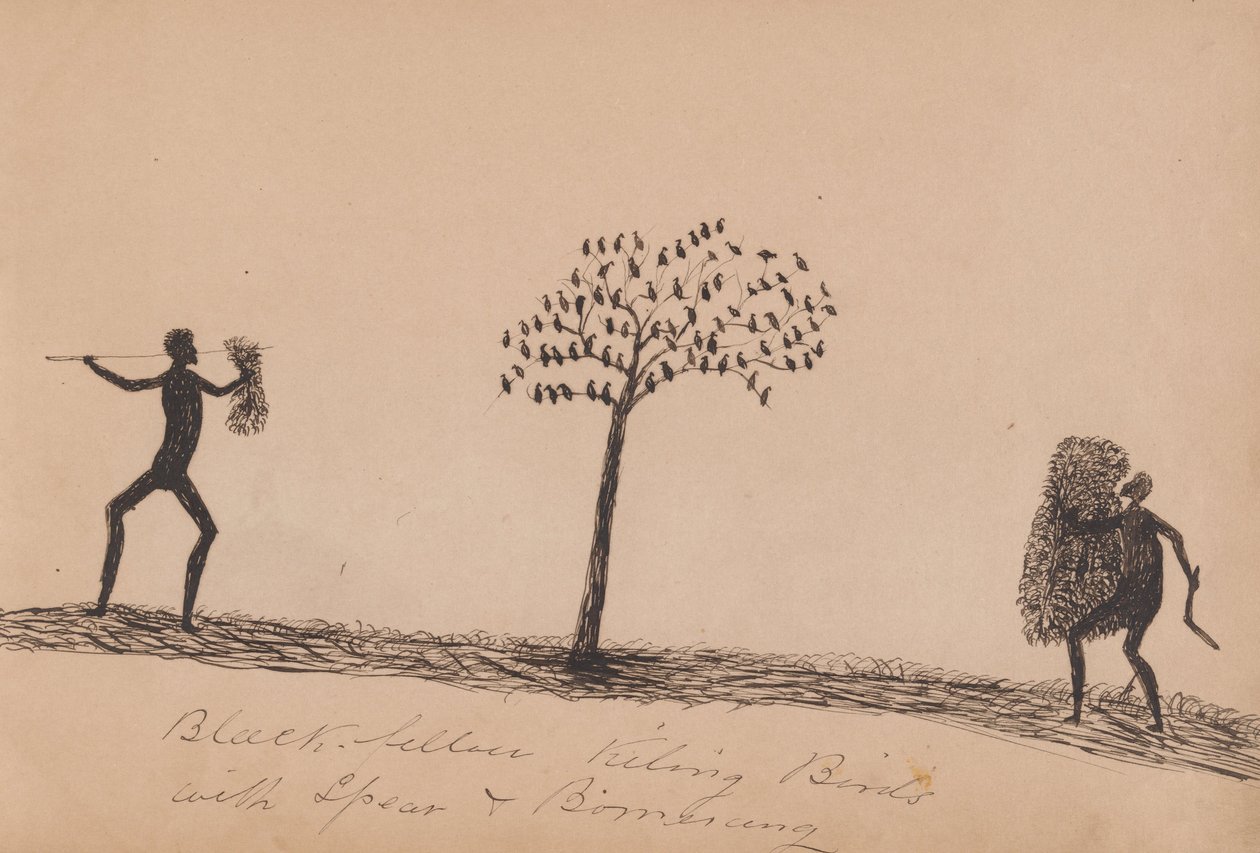 Black-fellow Kiling Birds
with Spear & Bomerang